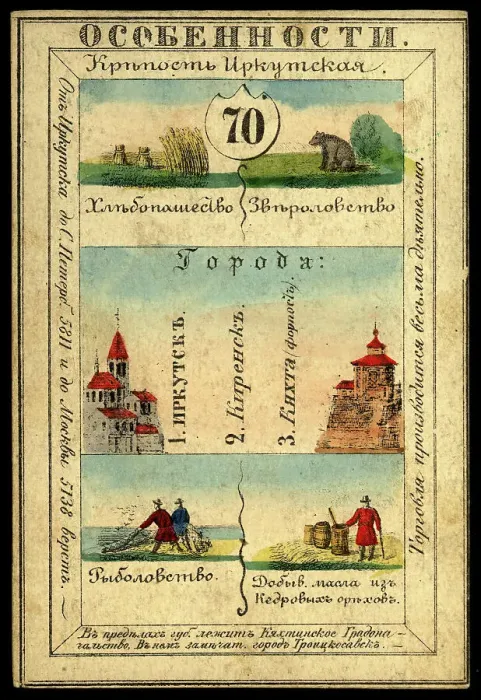 ОСОБЕННОСТИ.
Крѣпость Иркутская.
70
Хлѣбопашество
Звѣроловство
Города:
1. ИРКУТСКЪ.
2. Киренскъ.
3. Кяхта (форпостъ).
Рыболовство.
Добыв. масла изъ
Кедровыхъ орѣховъ.
Отъ Иркутска до С. Петерб. 5811 и до Москвы 5138 верстъ. —
Торговля производится весьма дѣятельно.
Въ предѣлахъ губ. лежитъ Кяхтинское Градона-
чальство. Въ немъ замѣчат. городъ Троицкосавскъ. —